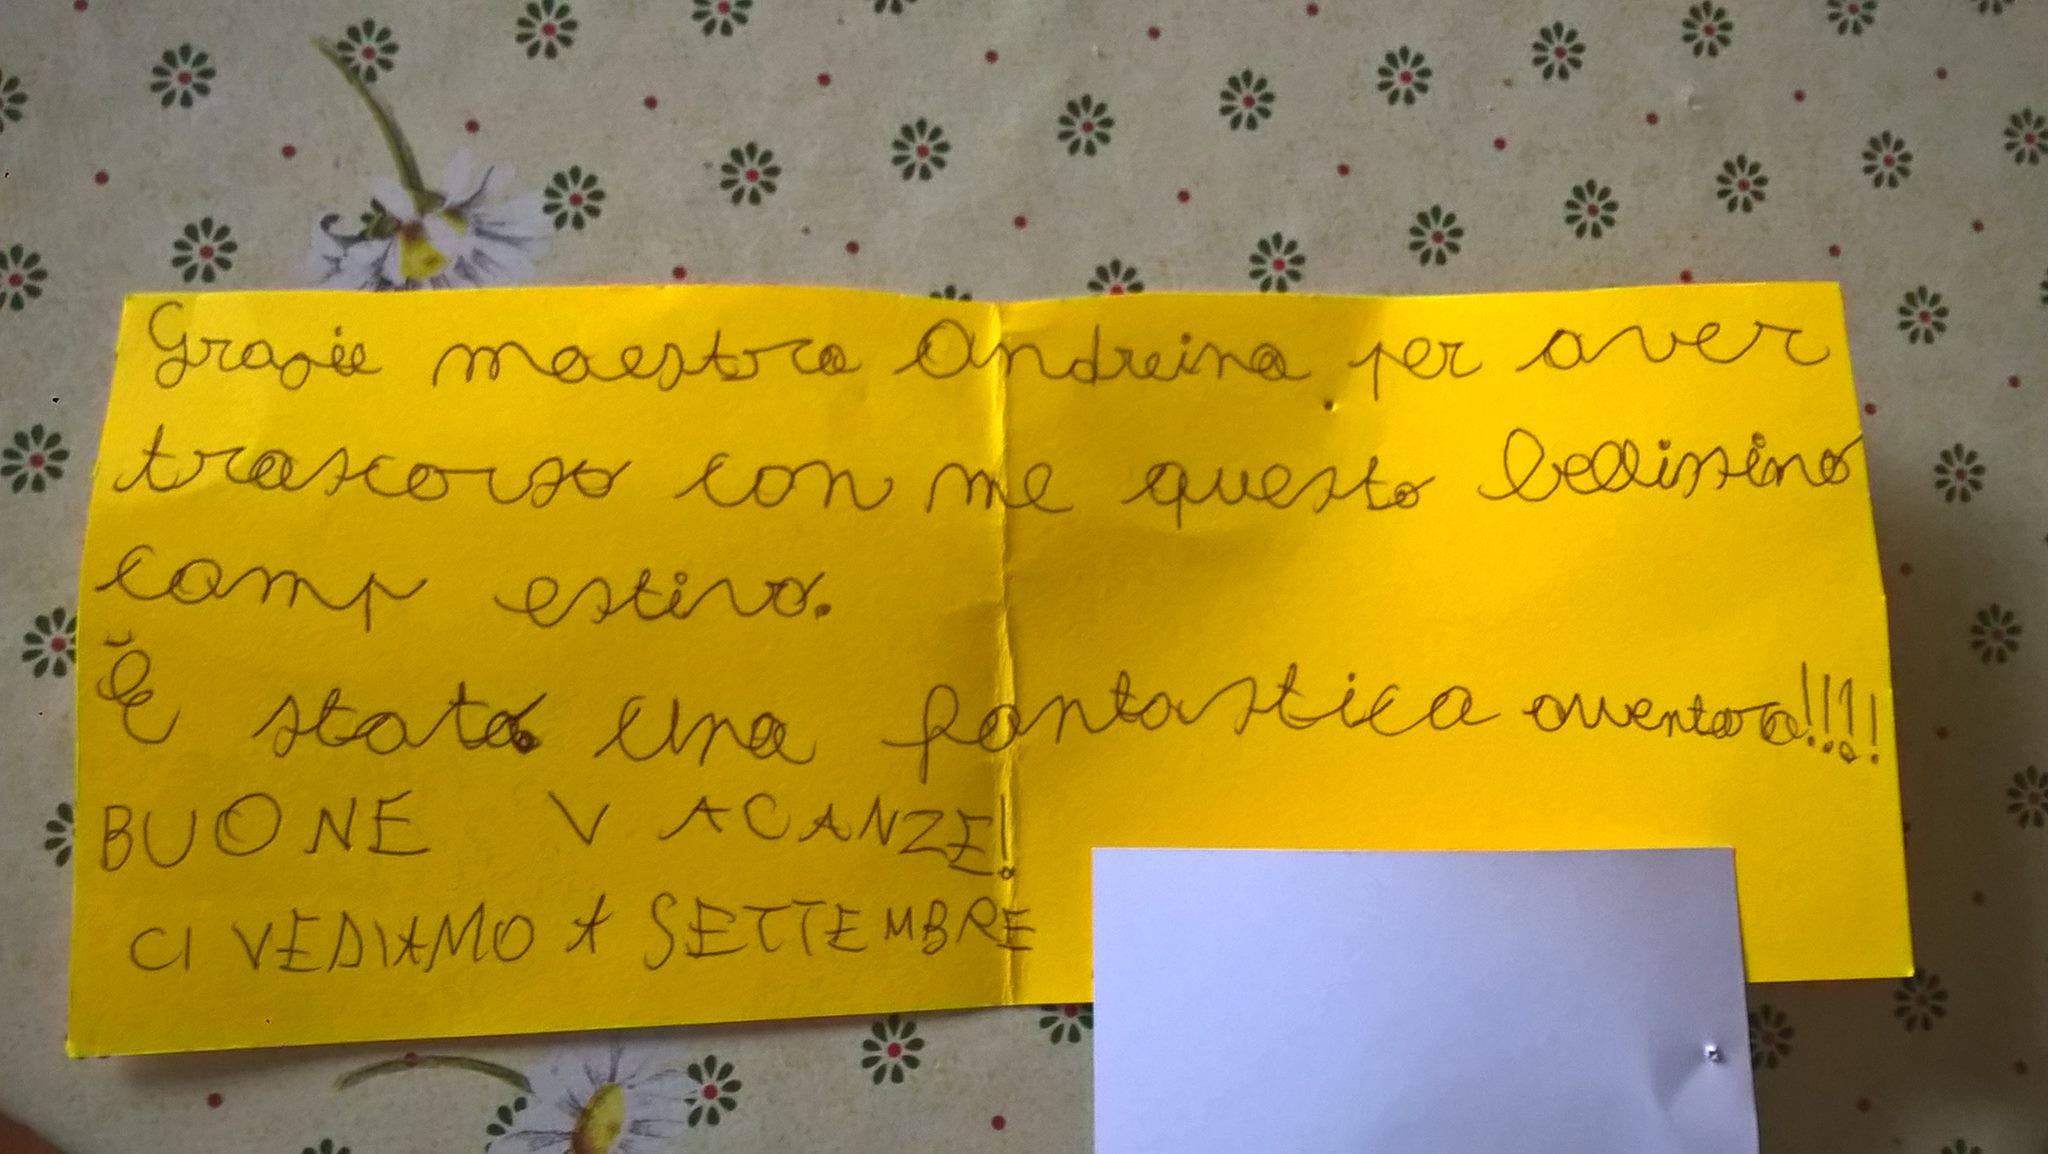 Grazie maestra Andreina per aver
trascorso con me questo bellissimo
camp estivo.
È stata una fantastica avventura!!!!
BUONE VACANZE!
CI VEDIAMO A SETTEMBRE